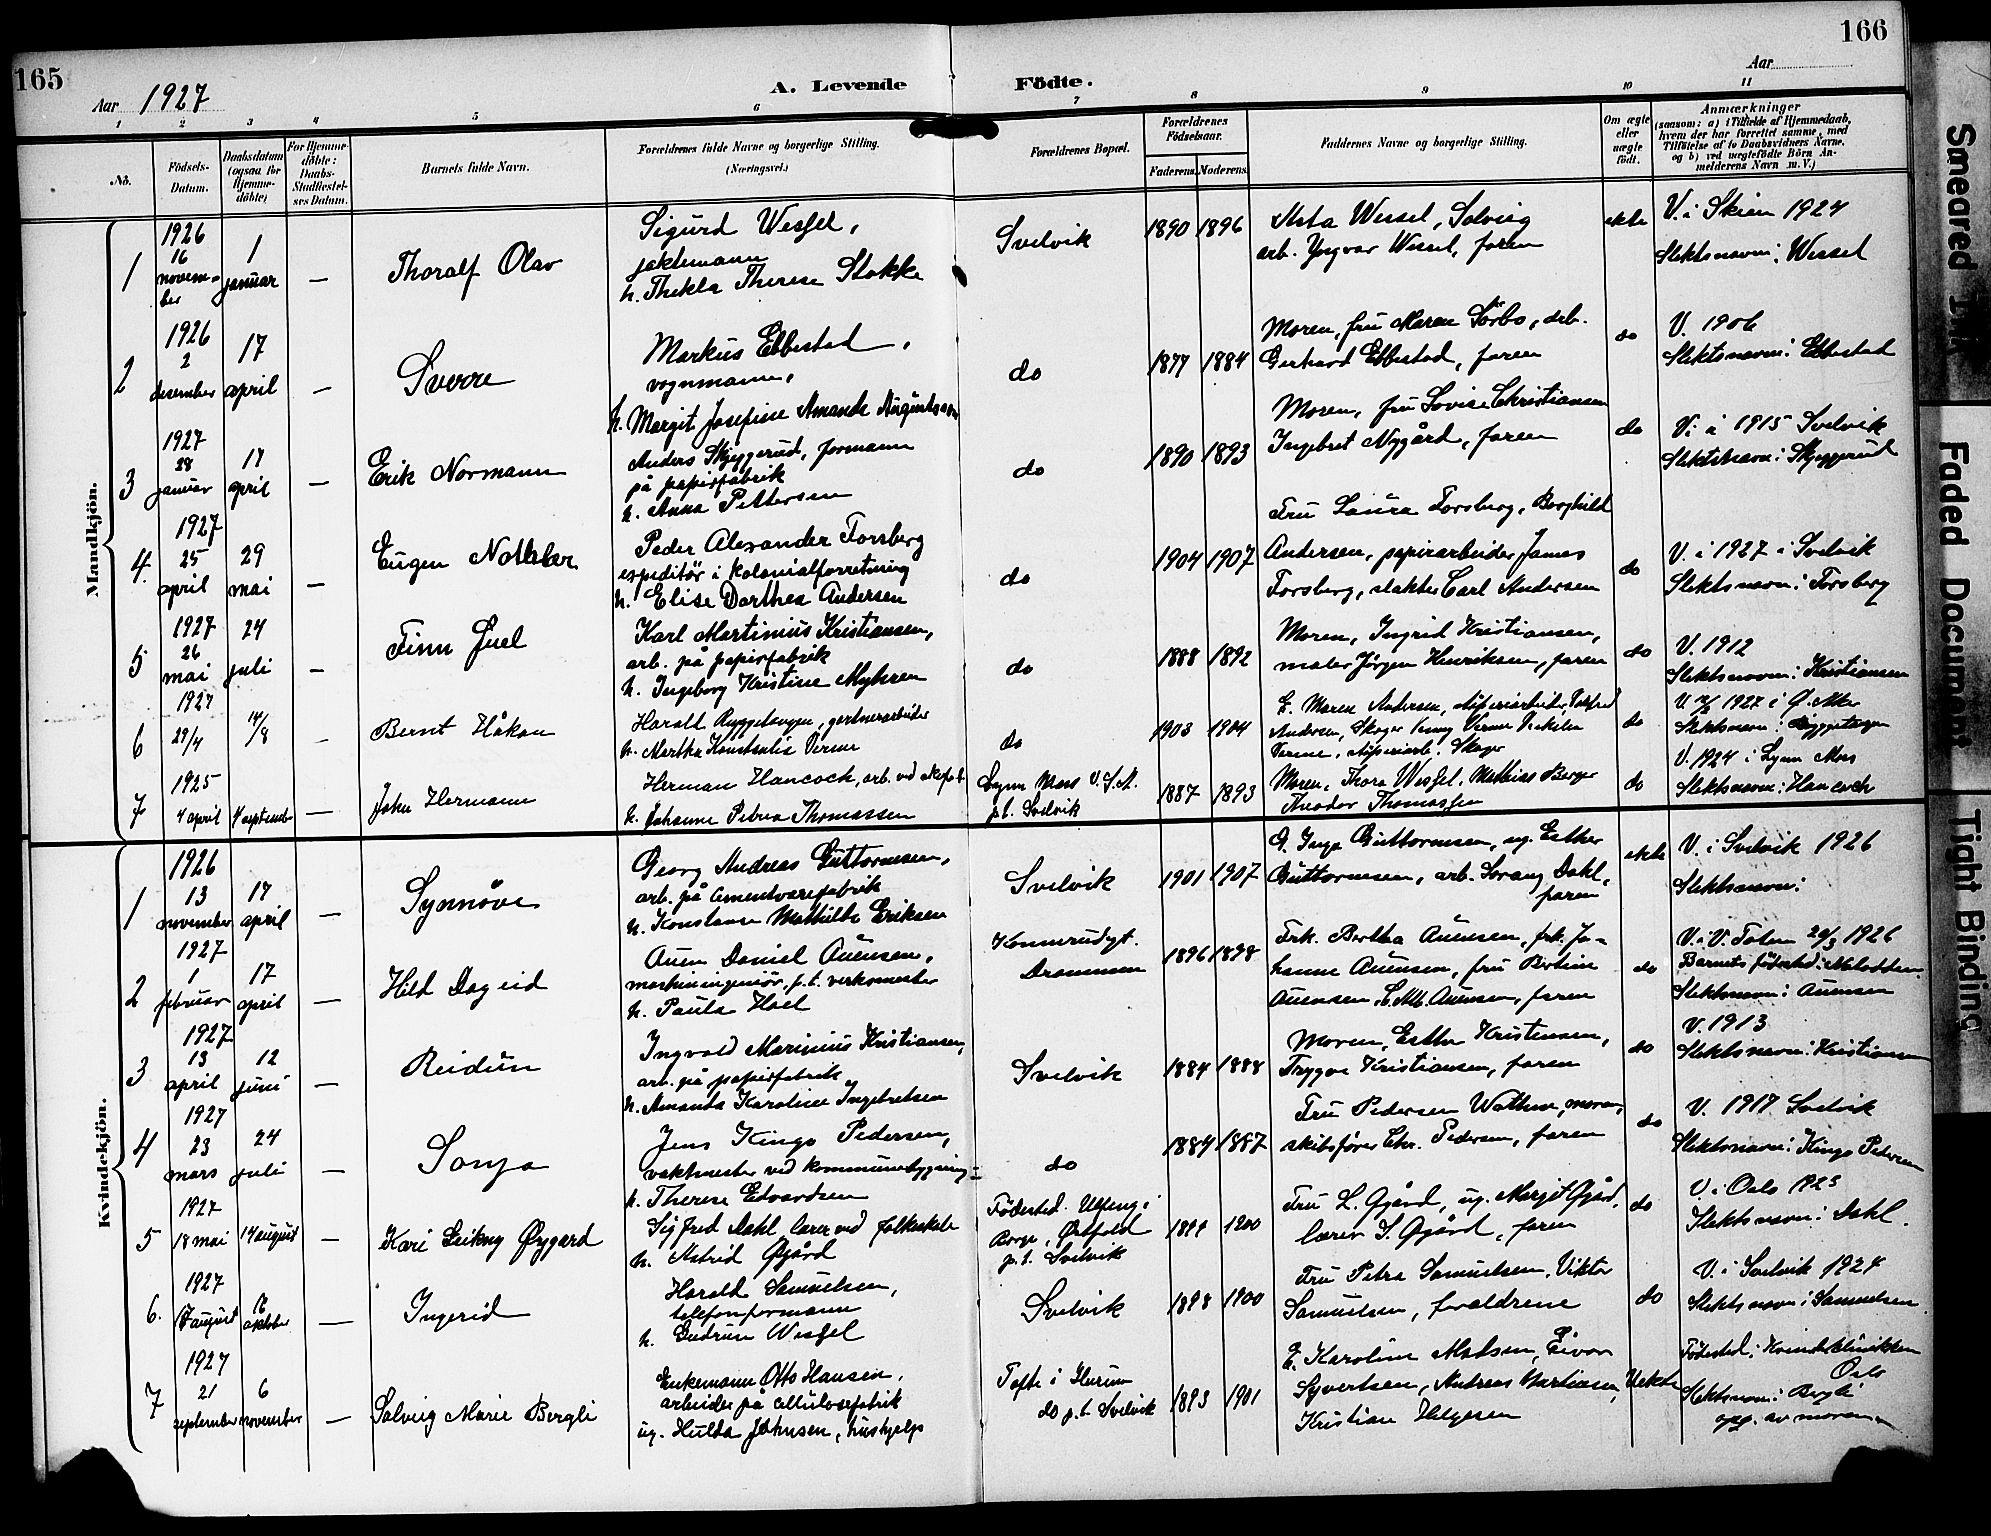 165
166
Aar 1927
A. Levende Födte.
Aar
1
2
3
4
5
6
7
8
9
10
11
No.
Födsels-
Datum.
Daabsdatum
(ogsaa for
Hjemme-
døbte)
For Hjemme-
döbte:
Daabs-
Stadfæstel-
ses Datum.
Barnets fulde Navn.
Forældrenes fulde Navne og borgerlige Stilling.
(Næringsvei.)
Forældrenes Bopæl.
Forældrenes
Fødselsaar.
Faderens.
Moderens.
Faddernes Navne og borgerlige Stilling.
Om ægte
eller
uægte
födt.
Anmærkninger
(saasom: a) i Tilfælde af Hjemmedaab,
hvem der har forrettet samme, med
Tilföielse af to Daabsvidners Navne,
og b) ved uægtefödte Börn An-
melderens Navn m. V.)
Mandkjön.
1
1926
16
novem-
ber
1
januar
—
Thoralf Olav
Sigurd Wessel,
jaktemann
h. Thekla Therese Stokke
Svelvik
1890 1896
Asta Wessel, Solveig
arb. Yngvar Wessel, faren
ekte
V. i Skien 1924
Slektsnavn: Wessel
2
1926
2
desember
17
april
—
Sverre
Markus Ebbestad,
vognmann,
h. Margit Josefine Amanda Augustsson
do
1877 1884
Moren, fru Maren Sørbø, arb.
Gerhard Ebbestad, faren
do
V. 1906
Slektsnavn: Ebbestad
3
1927
28
januar
17
april
—
Erik Normann
Anders Skjeggerud, formann
på papirfabrik
h. Anna Pettersen
do
1890 1893
Moren, fru Lovise Christiansen
Ingebret Nygård, faren
do
V. i 1915 Svelvik
Slektsnavn: Skjeggerud
4.
1927
25
april
29
mai
—
Eugen
Peder Alexander Forsberg
expeditör i kolonialforretning
h. Elise Dorthea Andersen
do
1904 1907
Fru Laura Forsberg, Borghild
Andersen, papirarbeider James
Forsberg, slakter Carl Andersen
do
V. i 1927 i Svelvik
Slektsnavn: Forsberg
5
1927
26
mai
24
juli
—
Finn Juel
Karl Martinius Kristiansen,
arb. på papirfabrik
h. Ingeborg Kristine Myhren
do
1888 1892
Moren, Ingrid Kristiansen,
maler Jörgen Henriksen, faren
do
V. 1912
Slektsnavn: Kristiansen
6
1927
29/4
14/8
—
Bernt Håkon
Harald Ryggetangen, gartnerarbeider
h. Martha Konstantse Verne
do
1903 1904
E. Maren Andersen,
Andersen, Skoger
Skoger
do
1927 i
Slektsnavn: Ryggetangen
7
1925
4 april
4 september
—
John Hermann
Herman Hancock, arb. ved
h. Johanne Petrea Thomassen
Lynn Mass U.S.A.
p.t. Svelvik
1887 1893
Moren, Thora Wessel, Mathias Berger
Theodor Thomassen
do
V. 1924 i Lynn Mass
Slektsnavn: Hancock
Kvindekjön.
1
1926
13
november
17
april
—
Synnöve
Georg Andreas Guttormsen,
arb. på cementvarefabrik
h. Konstanse Mathilde Eriksen
Svelvik
1901 1907
G. Inga Guttormsen, ug. Esther
Guttormsen, arb. Dahl,
faren
ekte
V. i Svelvik 1926
Slektsnavn:
2
1927
1
februar
17
april
—
Hild Dagrid
Auen Daniel Auensen,
maskiningeniör, p.t. verksmester
h. Paula Hoel
Konnerudgt.
Drammen
1896 1898
Frk. Bertha Auensen, frk. Jo-
hanne Auensen, fru Bertine
Auensen, Auensen, faren
do
V. i V. Toten 20/3 1926
Barnets födested:
Slektsnavn: Auensen
3
1927
13
april
12
juni
—
Reidun
Ingvald Marinius Kristiansen,
arb. på papirfabrik
h. Amanda Karoline Ingebretsen
Svelvik
1884 1888
Moren, Esther Kristensen,
Trygve Kristiansen, faren
do
V. 1913
Slektsnavn: Kristiansen
4
1927
23
mars
24
juli
—
Sonja
Jens Kingo Pedersen,
vaktmester ved kommunebygning
h. Therese Edvardsen
do
1884 1887
Fru Pedersen moren,
skibsförer Chr. Pedersen, faren
do
V. 1917 Svelvik
Slektsnavn: Kingo Pedersen
5
1927
18 mai
14 august
—
Kari Øygard
Sigfred Dahl, lærer ved folkeskole
h. Astrid Øgård
Födested:
Borge, Østfold
p.t. Svelvik
1899 1900
Fru L. Øgård, ug. Margit Øgård,
lærer S. Øgård, faren
do
V. i Oslo 1923
Slektsnavn: Dahl.
6.
1927
17 august
oktober
—
Ingerid
Harald Samuelsen,
telefonformann
h. Gudrun Wessel
Svelvik
1898 1900
Fru Petra Samuelsen, Viktor
Samuelsen, foreldrene
do
V. i Svelvik 1924
Slektsnavn: Samuelsen
7
1927
21
september
6
november
—
Solveig Marie Bergli
Enkemann Otto Hansen,
arbeider på cellulosefabrik
ug. Hulda Johnsen, hushjelp
Tofte i Hurum
do p.t. Svelvik
1893 1901
E. Karoline Madsen, Eivor
Syvertsen, Andreas Martinsen,
Kristian Helgesen
Uekte
Födested: Kvindeklinikken
Oslo
Slektsnavn: Bergli
opg. av moren
Smeared Ink
Faded Document
Tight Binding